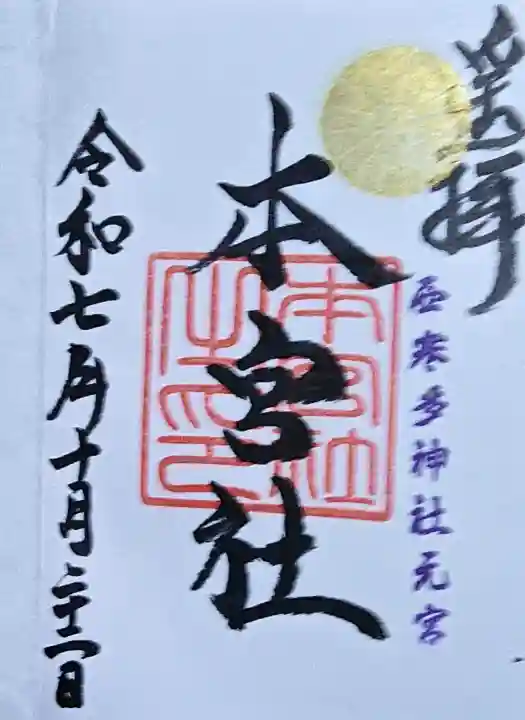 登拝
西寒多神社元宮
本宮社
本宮社之印
令和七年十月二十二日